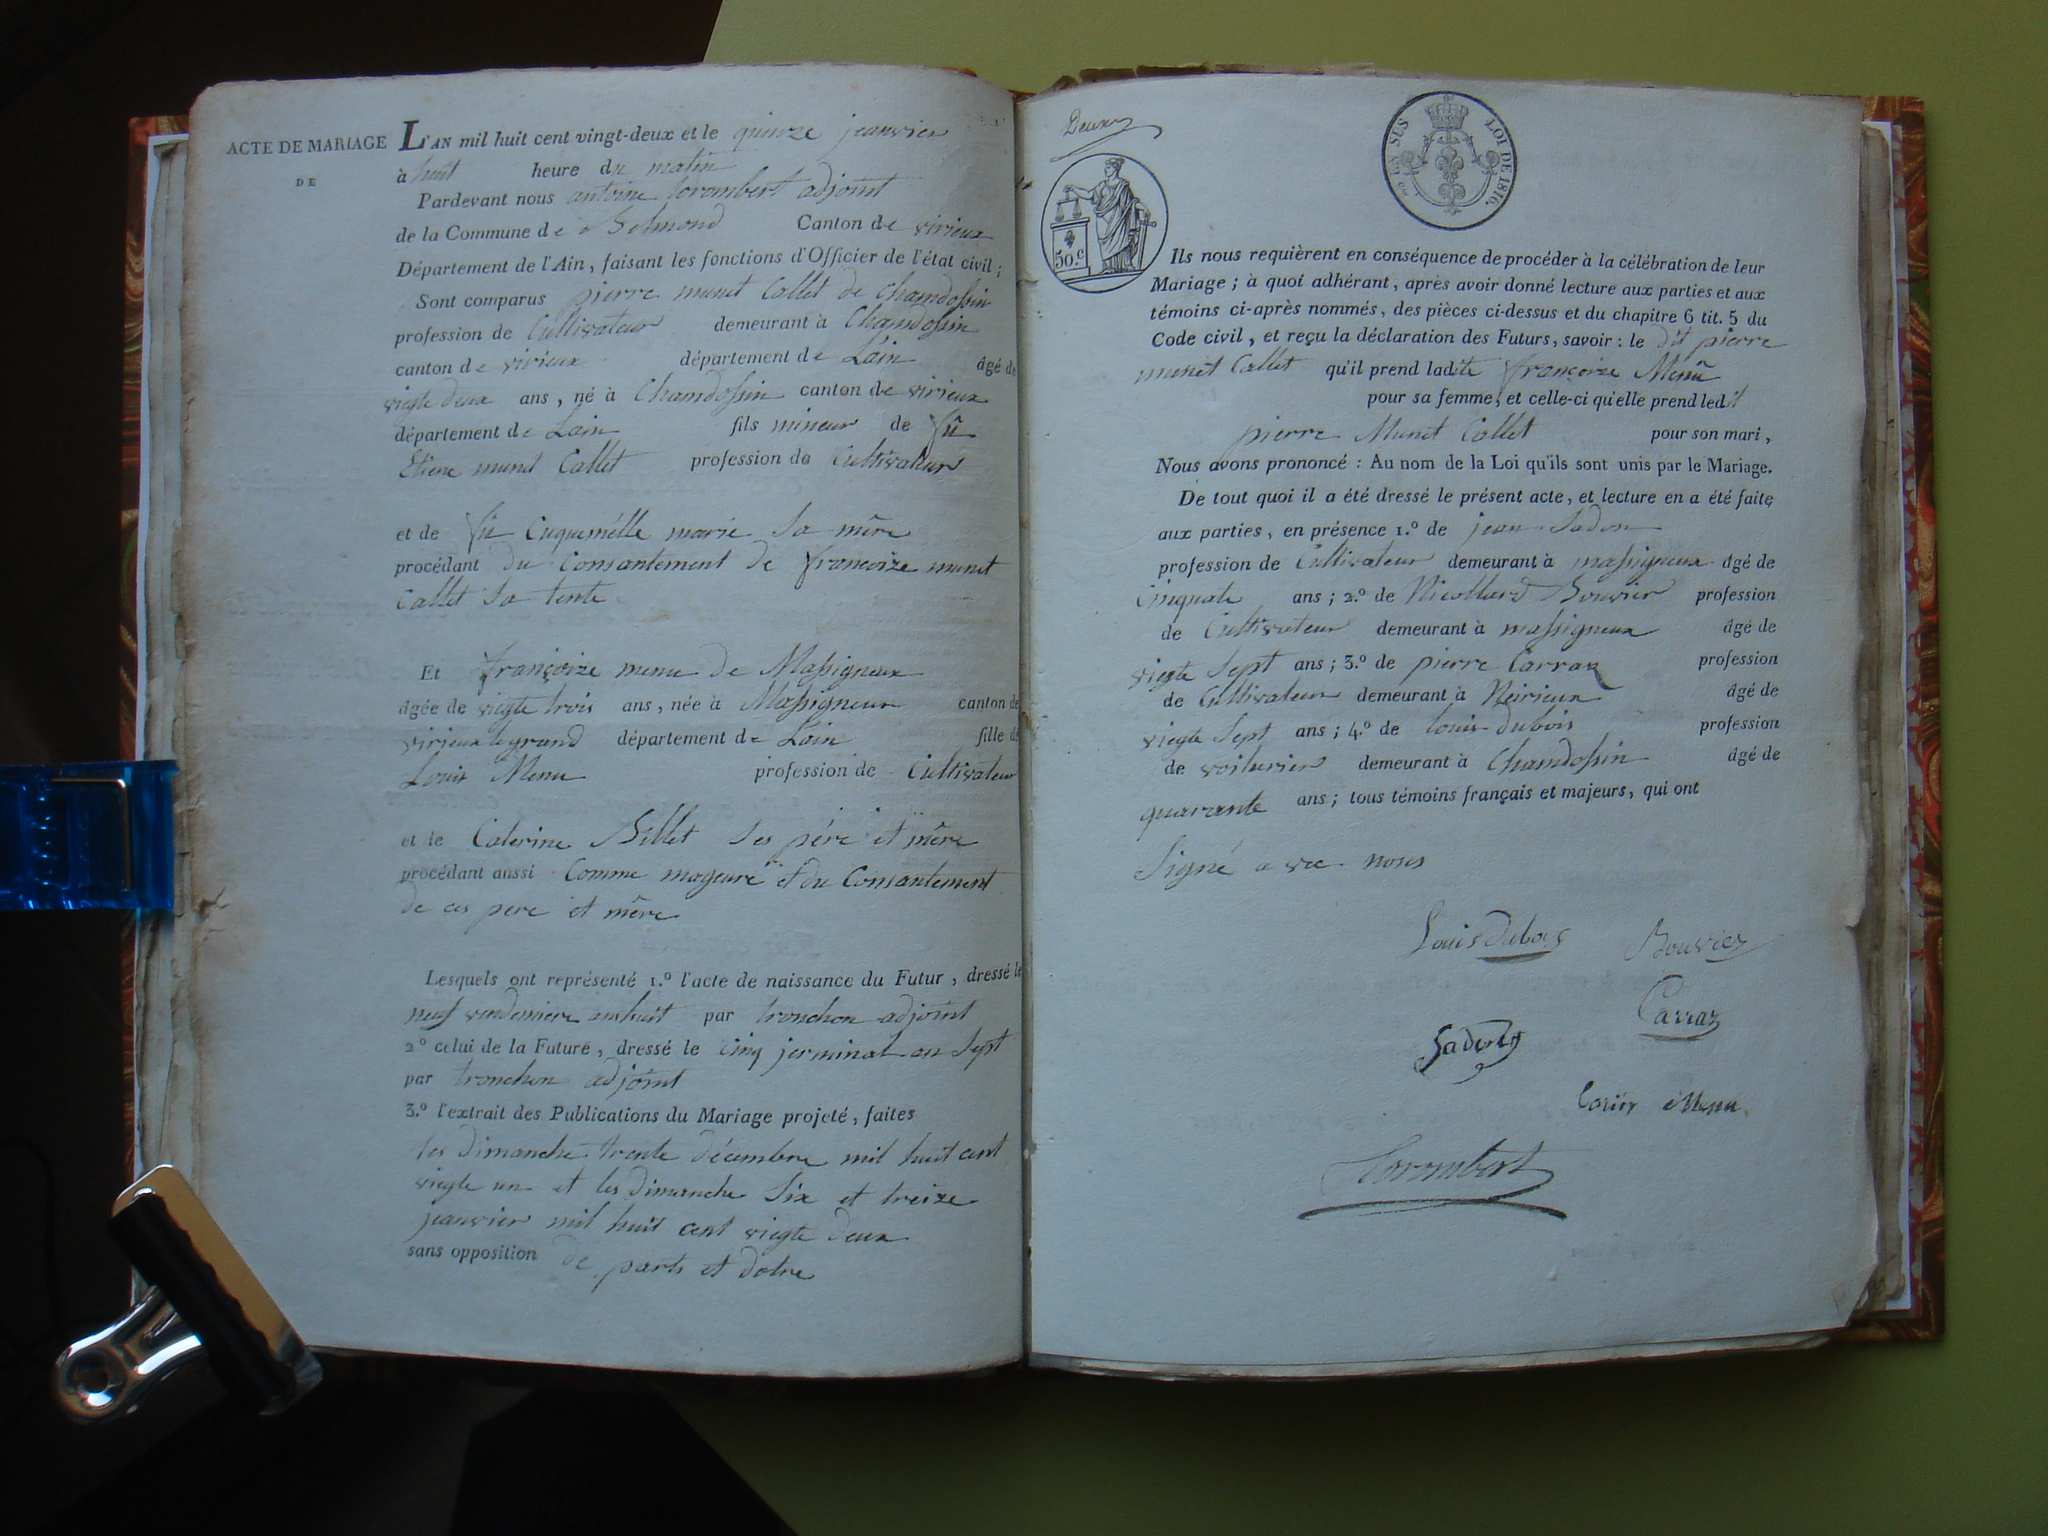 ACTE DE MARIAGE
DE
L'AN mil huit cent vingt-deux et le quinze jeanvier
à huit heure du matin
Pardevant nous antoine Corombert adjoint
de la Commune de Belmond Canton de virieux
Département de l'Ain, faisant les fonctions d'Officier de l'état civil;
Sont comparus pierre munet Callet de Chamdossin
profession de Cultivateur demeurant à Chamdossin
canton de virieux département de Lain âgé de
viegte deux ans, né à Chamdossin canton de virieux
département de Lain fils mineur de fû
Etiene munet Callet profession de Cultivateur
et de fû Cuquemélle marie Sa mêre
procédant du Consantement de françoize munet
Callet Sa tente
Et françoize menu de Massigneux
âgée de viegte trois ans, née à Massigneux canton de
virieux legrand département de Lain fille de
Louis Menu profession de Cultivateur
et de Caterine Billet Ses pére et mêre
procédant aussi Comme mageure et du Consantement
de ces pere et mêre
Lesquels ont représenté 1.º l'acte de naissance du Futur, dressé le
neuf vendemiere anhuit par tronchon adjoint
2º celui de la Future, dressé le cinq jerminal an Sept
par tronchon adjoint
3.º l'extrait des Publications du Mariage projeté, faites
les dimanche trente décembre mil huit cent
viegte un et les dimanche Six et treize
jeanvier mil huit cent viegte deux
sans opposition de parts et dotre
Deux
50.c
LOI DE 1816.
Ils nous requièrent en conséquence de procéder à la célébration de leur
Mariage; à quoi adhérant, après avoir donné lecture aux parties et aux
témoins ci-après nommés, des pièces ci-dessus et du chapitre 6 tit. 5 du
Code civil, et reçu la déclaration des Futurs, savoir: le dit pierre
munet Callet qu'il prend ladite françoize Menû
pour sa femme, et celle-ci qu'elle prend ledit
pierre Munet Callet pour son mari,
Nous avons prononcé: Au nom de la Loi qu'ils sont unis par le Mariage.
De tout quoi il a été dressé le présent acte, et lecture en a été faite
aux parties, en présence 1.º de jean Sadon
profession de Cultivateur demeurant à massigneux âgé de
Cinquate ans; 2.º de Nicollard Bouvier profession
de Cultivateur demeurant à massigneux âgé de
viegte Sept ans; 3.º de pierre Carraz profession
de Cultivateur demeurant à Neirieux âgé de
viegte Sept ans; 4.º de louis dubois profession
de voiturier demeurant à Chamdossin âgé de
quarante ans; tous témoins français et majeurs, qui ont
Signé a vec nous
Louis Dubois Bouvier
Carraz
Sadon
Louis Menu
Corombert